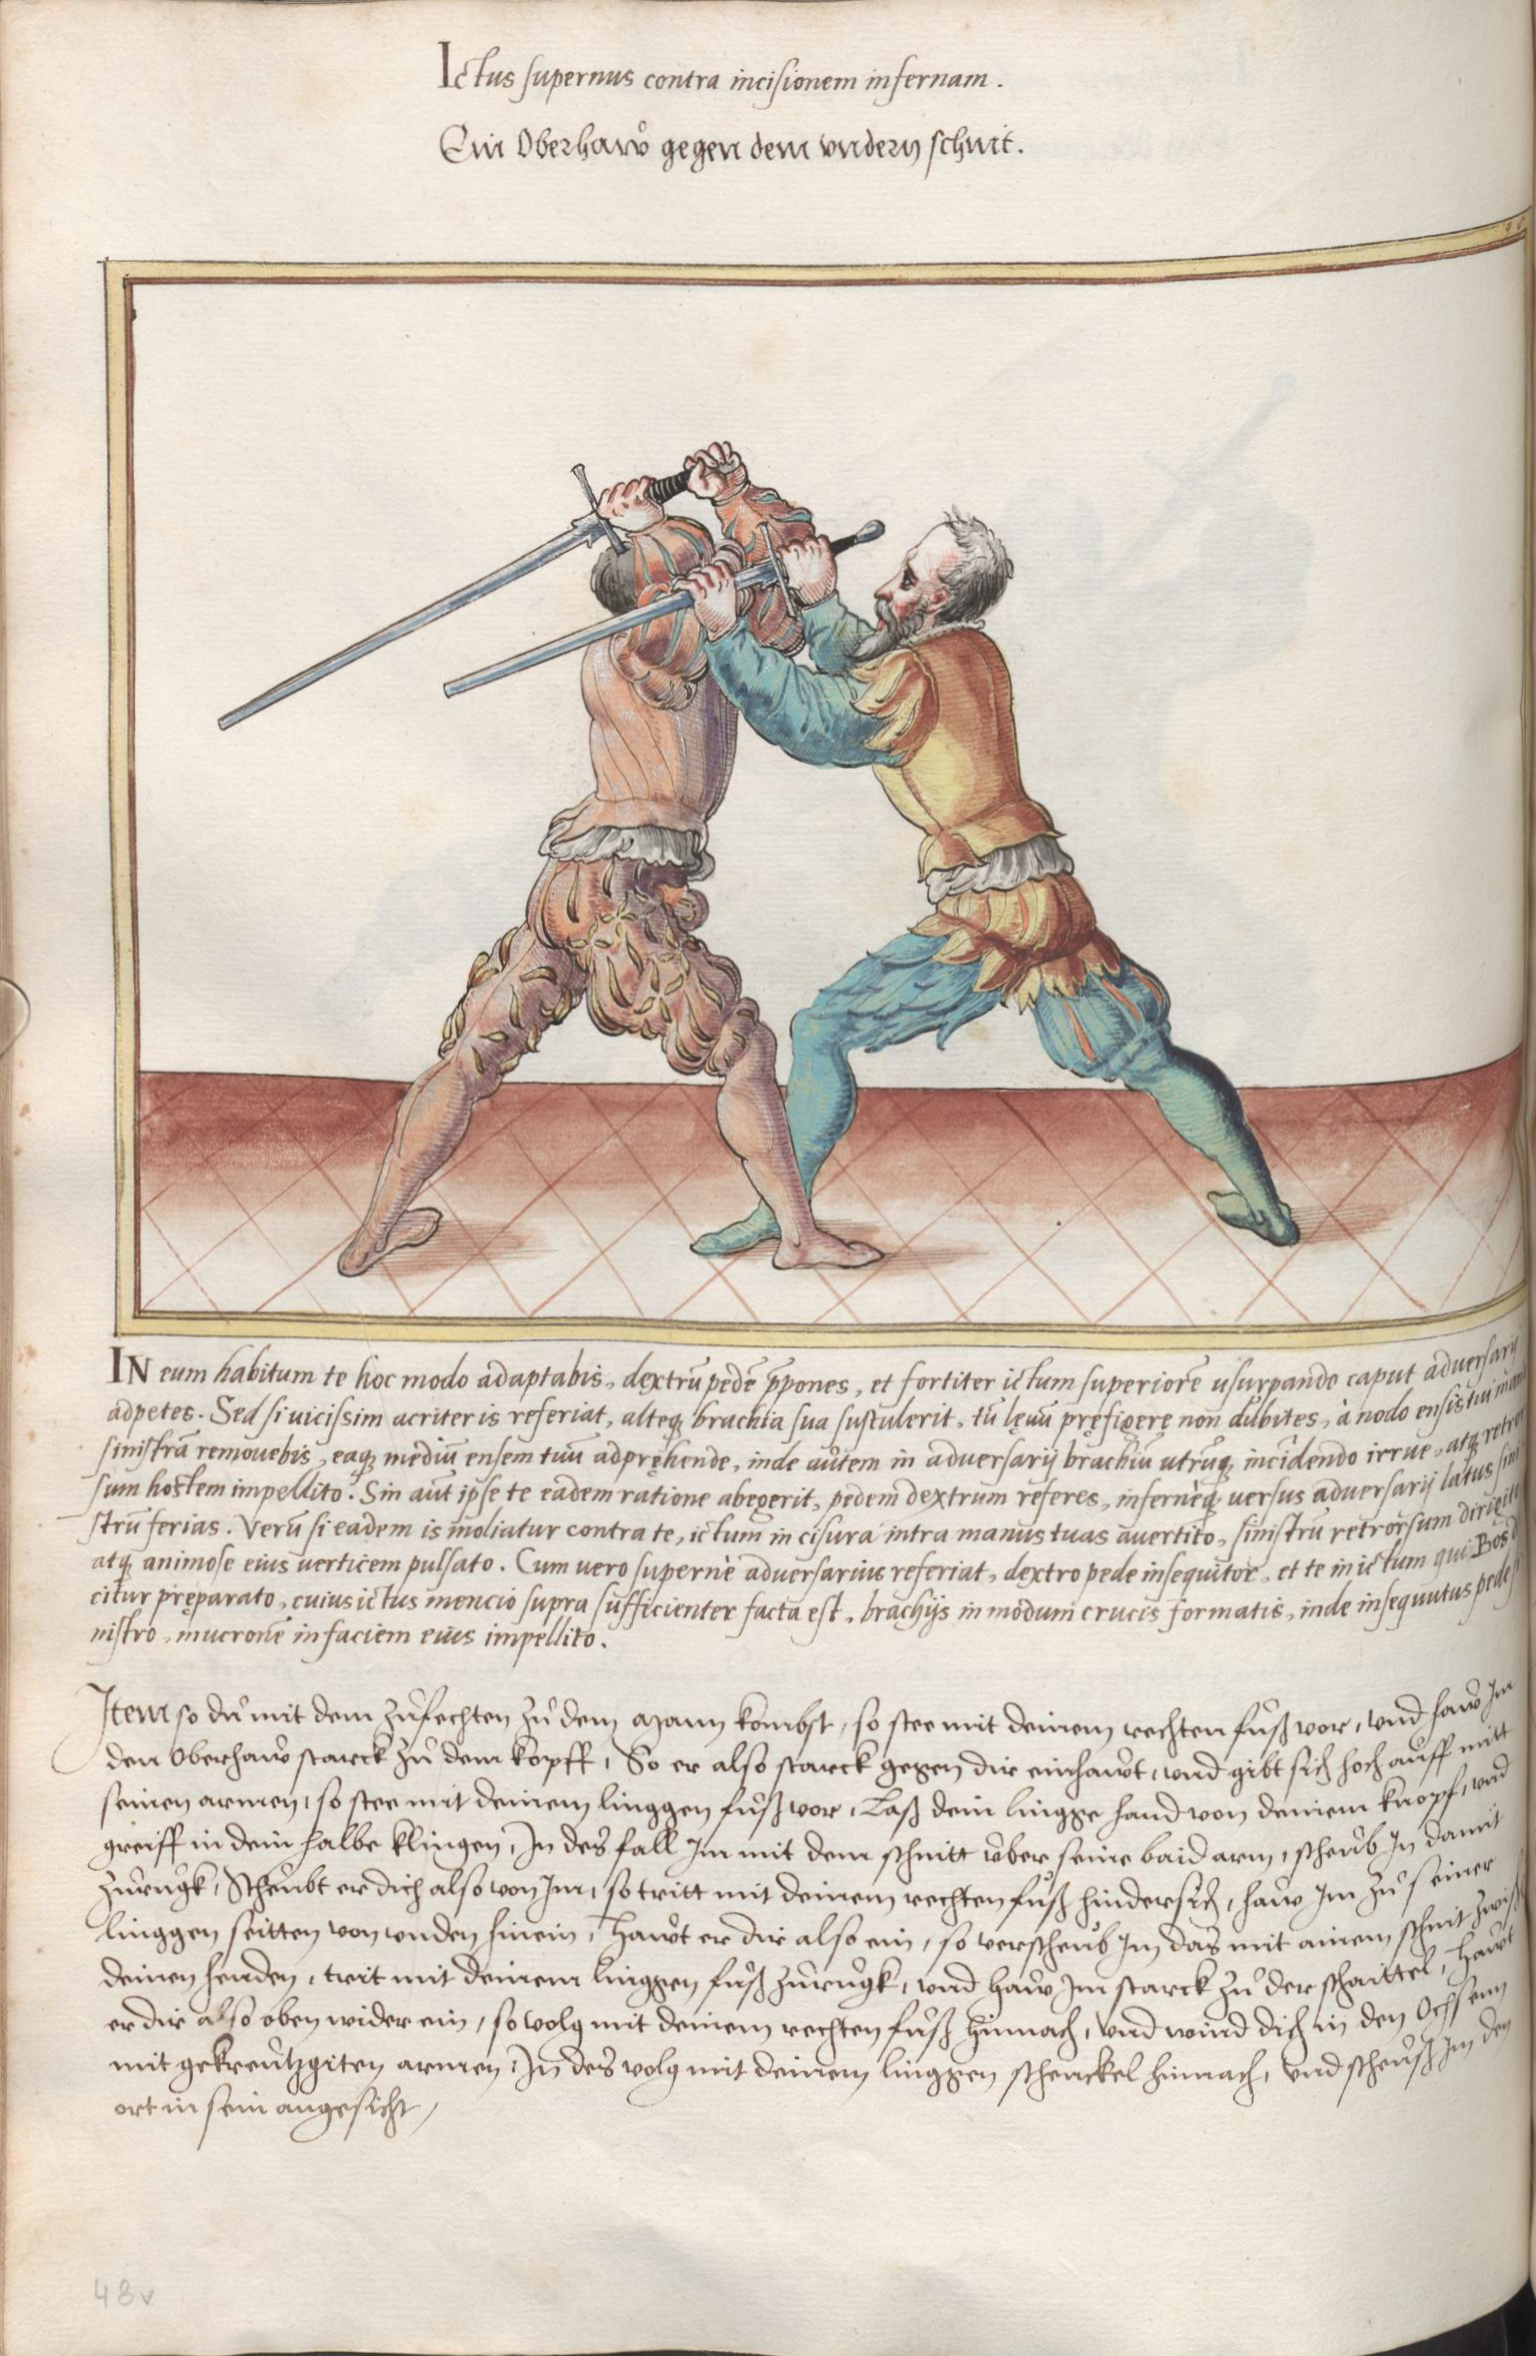 Ictus supernus contra incisionem infernam.
Ein Oberhaw gegen dem undern schnit.
IN eum habitum te hoc modo adaptabis, dextrū pedē ꝓpones, et fortiter ictum superiorē usurpando caput adversarij
adpetes. Sed si vicissim acriter is referiat, alteq; brachia sua sustulerit, tū lęvū pręfigere non dubites, à nodo ensis tui
sinistrā removebis, eaq; mediū ensem tuū adpręhende, inde aūtem in adversarij brachiū utrūq; incidendo irrue, atq;
sum hostem impellito. Sin aūt ipse te eadem ratione abegerit, pedem dextrum referes, infernèq; versus adversarij latus
strū ferias. Verū si eadem is moliatur contra te, ictum incisura intra manus tuas avertito, sinistrū retrorsum
atq; animose eius verticem pulsato. Cum vero supernè adversarius referiat, dextro pede insequitor, et te in ictum qui Bos
citur pręparato, cuius ictus mencio supra sufficienter facta est, brachijs in modum crucis formatis, inde insequutus pede
nistro, mucronē in faciem eius impellito.
Item so du mit dem zufechten zu dem mann kombst, so stee mit deinem rechten fuß vor, und haw Im
den Oberhaw starck zu dem kopff, So er also starck gegen dir einhawt, und gibt sich hoch auff mitt
seinen armen, so stee mit deinem linggen fuß vor, Laß dein lingge hand von deinem knopf, und
greiff in dein halbe klingen, In des fall Im mit dem schnitt uber seine baid arm, scheub In damit
zurugk, Scheubt er dich also von Im, so tritt mit deinem rechten fuß hindersich, haw Im zu seiner
linggen seitten von unden hinein, Hawt er dir also ein, so verscheub Im das mit ainem schnit
deinen henden, trit mit deinem linggen fuß zurugk, und haw Im starck zu der schaittel, Hawt
er dir also oben wider ein, so volg mit deinem rechten fuß hinnach, und wind dich in den Ochsenn
mit gekreutzgiten armen, In des volg mit deinem linggen schenckel hinnach, und scheuß Im den
ort in sein angesicht,
48v